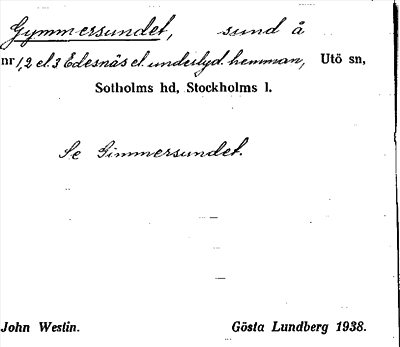 Gymmersundet, sund å
nr 1, 2 el. 3 Edesnäs el. underlyd. hemman, Utö sn,
Sotholms hd, Stockholms l.
Se Gimmersundet.
John Westin. Gösta Lundberg 1938.